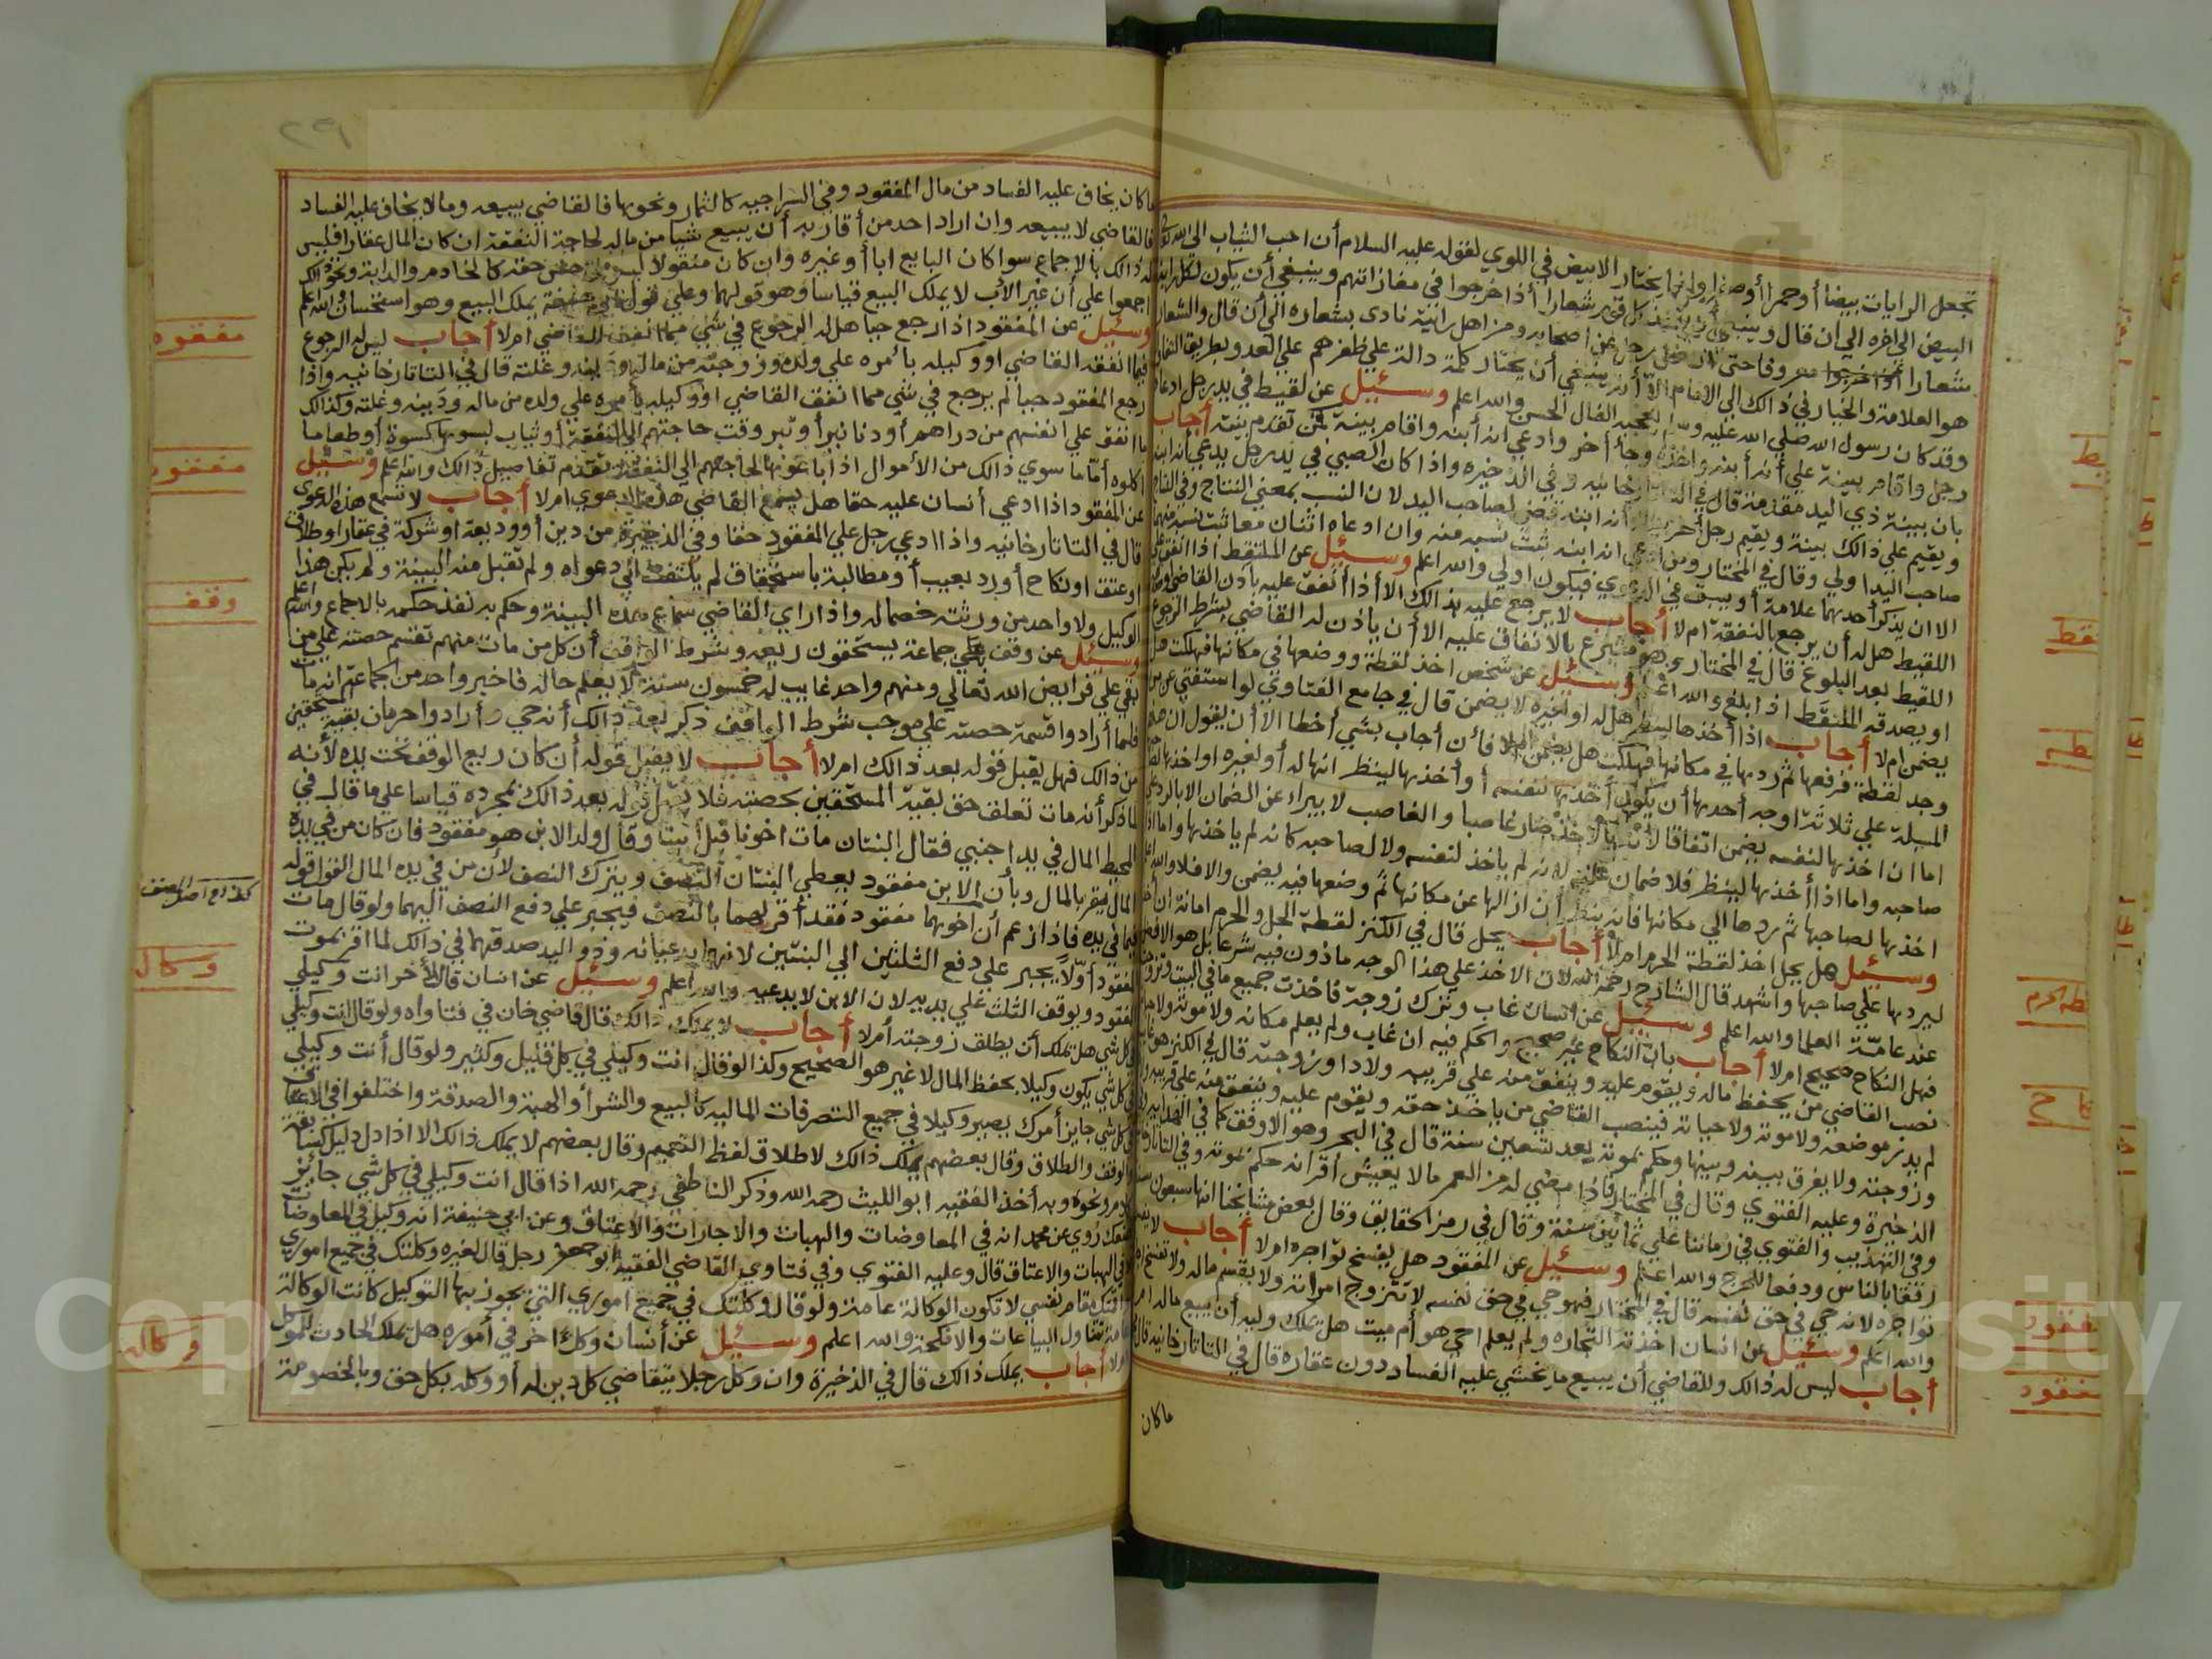 تجعل الرايات بيضا أو حمرا أو صفرا وانما يختار الابيض في اللوي لقوله عليه السلام أن احب الثياب الى الله
البيض الى اخره الى ان قال وينبغي أن يتخذ كل قوم شعارا أذا خرجوا في مغازاتهم وينبغي أن يكون لكل راية
شعارا معروفا حتى ان ضل رجل عن اصحابه ومن اهل رايته نادى بشعاره الى أن قال والشعار
هو العلامة والخيار في ذالك الى الامام الا أنه ينبغي أن يختار كلمة دالة على ظفرهم على العدو بطريق التفال
وقد كان رسول الله صلى الله عليه وسلم يعجبه الفال الحسن والله اعلم وسئيل عن لقيط في يد رجل ادعاه
رجل واقام بينة على أنه أبنه وجأ أخر وادعي انه أبنه واقام بينة لمن تقدم بينته أجاب
بان بينة ذي اليد مقدمة قال في التاتارخانيه وفي الذخيره واذا كان الصبي في يد رجل يدعي أنه ابنه
ويقيم على ذالك بينة ويقيم رجل أخر بينة أنه ابنه قضي لصاحب اليد لان النسب بمعني النتاج وفي النتاج
صاحب اليد اولي وقال في المختار ومن ادعي انه ابنه ثبت نسبه منه وان ادعاه اثنان معا ثبت نسبه منهما
الا ان يذكر أحدهما علامة أو يسبق في الدعوي فيكون اولي والله اعلم وسئيل عن الملتقط اذا انفق على
اللقيط هل له أن يرجع بالنفقة ام لا أجاب لا يرجع عليه بذالك الا أذا أنفق عليه بأذن القاضي
اللقيط بعد البلوغ قال في المختار وهو متبرع بالانفاق عليه الا أن ياذن له القاضي بشرط الرجوع
او يصدقه الملتقط اذا بلغ والله اعلم وسئيل عن شخص اخذ لقطة ووضعها في مكانها فهلكت هل
يضمن ام لا أجاب اذا أخذها لينظر هل له او لغيره لا يضمن قال في جامع الفتاوي لو استفتي عن من
وجد لقطة فرفعها ثم ردها في مكانها فهلكت هل يضمن ام لا فأن أجاب بشي أخطا الا أن يقول ان هذه
المسيلة على ثلاثة اوجه أحدها أن يكون أخذها لنفسه أو أخذها لينظر انها له أو لغيره او اخذها
اما ان اخذها لنفسه يضمن اتفاقا لأنه بالاخذ صار غاصبا والغاصب لا يبرا عن الضمان الا بالرد على
صاحبه واما اذا أخذها لينظر فلا ضمان عليه لانه لم ياخذ لنفسه ولا لصاحبه كانه لم ياخذها واما اذا
اخذها لصاحبها ثم ردها الى مكانها فأنه ينظر أن ازالها عن مكانها ثم وضعها فيه يضمن والا فلا والله اعلم
وسئيل هل يحل اخذ لقطة الحرم ام لا أجاب يحل قال في الكنز لقطة الحل والحرم امانة ان أخذ
ليردها على صاحبها واشهد قال الشارح رحمه الله لان الاخذ على هذا الوجه ماذون فيه شرعا بل هو الافضل
عند عامة العلما والله اعلم وسئيل عن انسان غاب وترك زوجة فاخذت جميع ما في البيت وتزوجت
فهل النكاح صحيح ام لا أجاب بان النكاح غير صحيح والحكم فيه ان غاب ولم يعلم مكانه ولا موته ولا حياته
نصب القاضي من يحفظ ماله ويقوم عليه وينفق منه على قريبه ولادا وزوجته قال في الكنز هو غايب
لم يدر موضعه ولا موته ولا حياته فينصب القاضي من ياخذ حقه ويقوم عليه وينفق منه على قريبه
وزوجته ولا يفرق بينه وبينها وحكم بموته بعد تسعين سنة قال في البحر وهو الاوفق كما في الهدايه
الذخيرة وعليه الفتوي وقال في المختار فاذا مضي له من العمر مالا يعيش اقرانه حكم بموته وفي التاتارخانيه
وفي التهذيب والفتوي في زماننا على ثمانين سنة وقال في رمز الحقايق وقال بعض مشايخنا انها سبعون سنة
رفقا بالناس ودفعا للحرج والله اعلم وسئيل عن المفقود هل يفسخ تواجره ام لا أجاب لا
تواجره لانه حي في حق نفسه قال في المختار فهو حي في حق نفسه لا تتزوج امراته ولا يقسم ماله ولا تفسخ
والله اعلم وسئيل عن انسان اخذته التجاره ولم يعلم احي هو أم ميت هل يملك وليه أن يبيع ماله ام
أجاب ليس له ذالك وللقاضي أن يبيع ما يخشي عليه الفساد دون عقاره قال في التاتارخانيه قال
ما كان
بط
قط
طة
طه الحرم
كاح
فقود
فقود
٢٩
ما كان يخاف عليه الفساد من مال المفقود وفي السراجيه كالثمار ونحوها فالقاضي يبيعه ومالا يخاف عليه الفساد
فالقاضي لا يبيعه وان اراد احد من أقاربه أن يبيع شيا من ماله لحاجة النفقة ان كان المال عقارا فليس
له ذالك بالاجماع سوا كان البايع ابا أو غيره وان كان منقولا ليس من جنس حقه كالخادم والدابة ونحو ذالك
اجمعوا على أن غير الأب لا يملك البيع قياسا وهو قولهما وعلى قول ابي حنيفة يملك البيع وهو استحسان والله اعلم
وسئيل عن المفقود اذا رجع حيا هل له الرجوع في شي مما انفق القاضي ام لا أجاب ليس له الرجوع
فيما انفقه القاضي او وكيله بأمره على ولده وزوجته من ماله ودينه وغلته قال في التاتارخانيه واذا
رجع المفقود حيا لم يرجع في شي مما انفق القاضي او وكيله بأمره على ولده من ماله ودينه وغلته وكذالك
ما انفق على انفسهم من دراهم أو دنانير أو تبر وقت حاجتهم الى النفقة أو ثياب لبسوها كسوة أو طعاما
اكلوه أما ما سوي ذالك من الأموال اذا باعوها لحاجتهم الى النفقة تقدم تفاصيل ذالك والله اعلم وسئيل
عن المفقود اذا ادعي أنسان عليه حقا هل يسمع القاضي هذه الدعوي ام لا أجاب لا تسمع هذه الدعوي
قال في التاتارخانيه واذا ادعي رجل على المفقود حقا وفي الذخيرة من دين أو وديعة او شركة في عقار او طلاق
او عتق او نكاح أو رد بعيب أو مطالبة باستحقاق لم يلتفت الى دعواه ولم تقبل منه البينة ولم يكن هذا
الوكيل ولا واحد من ورثته خصما له واذا راي القاضي سماع هذه البينة وحكم به نفذ حكمه بالاجماع والله اعلم
وسئيل عن وقف على جماعة يستحقون ريعه وشرط الواقف أن كل من مات منهم تقسم حصته على من
بقي على فرايض الله تعالي ومنهم واحد غايب له خمسون سنة لا يعلم حاله فاخبر واحد من الجماعة انه مات
فلما أرادوا قسمة حصته على موجب شرط الواقف ذكر بعد ذالك أنه حي وأراد واحرمان بقية المستحقين
من ذالك فهل يقبل قوله بعد ذالك ام لا أجاب لا يقبل قوله أن كان ريع الوقف تحت يده لأنه
لما ذكر أنه مات تعلق حق بقية المستحقين بحصته فلا يقبل قوله بعد ذالك بمجرده قياسا على ما قال في
المحيط المال في يد اجنبي فقال البنتان مات اخونا قبل أبينا وقال ولد الابن هو مفقود فان كان من في يده
المال يقر بالمال وبأن الابن مفقود يعطي البنتان النصف ويترك النصف لأن من في يده المال القول قوله
فيما في يده فاذا زعم أن اخوهما مفقود فقد أقر لهما بالنصف فيجبر على دفع النصف اليهما ولو قال مات
المفقود أولا يجبر على دفع الثلثين الى البنتين لانهما يدعيانه وذو اليد صدقهما في ذالك لما اقر بموت
المفقود ويوقف الثلث على يديه لان الابن لا يدعيه والله اعلم وسئيل عن انسان قال لأخر انت وكيلي
في كل شي هل تملك أن يطلق زوجته أم لا أجاب لا يملك ذالك قال قاضي خان في فتاواه ولو قال انت وكيلي
في كل شي يكون وكيلا بحفظ المال لا غير هو الصحيح وكذا لو قال انت وكيلي في كل قليل وكثير ولو قال أنت وكيلي
في كل شي جايز أمرك يصير وكيلا في جميع التصرفات الماليه كالبيع والشرأ والهبة والصدقة واختلفوا في الاعتاق
والوقف والطلاق وقال بعضهم يملك ذالك لاطلاق لفظ التعميم وقال بعضهم لا يملك ذالك الا اذا دل دليل كسابقة
كلام ونحوه وبه أخذ الفقيه ابو الليث رحمه الله وذكر الناطفي رحمه الله اذا قال انت وكيلي في كل شي جائز
صنعك رُوي عن محمد انه في المعاوضات والهبات والاجارات والاعتاق وعن ابي حنيفة انه وكيل في المعاوضات
لا في الهبات والاعتاق قال وعليه الفتوي وفي فتاوي القاضي الفقيه ابو جعفر رجل قال لغيره وكلتك في جميع اموري
واقمتك مقام نفسي لا تكون الوكالة عامة ولو قال وكلتك في جميع اموري التي يجوز بها التوكيل كانت الوكالة
عامة تتناول البياعات والانكحة والله اعلم وسئيل عن أنسان وكل اخر في أموره هل يملك الحادث للموكل
ام لا أجاب يملك ذالك قال في الذخيرة وان وكل رجلا يتقاضي كل دين له أو وكله بكل حق وبالخصومة
مفقود
مفقود
وقف
وكاله
وكاله